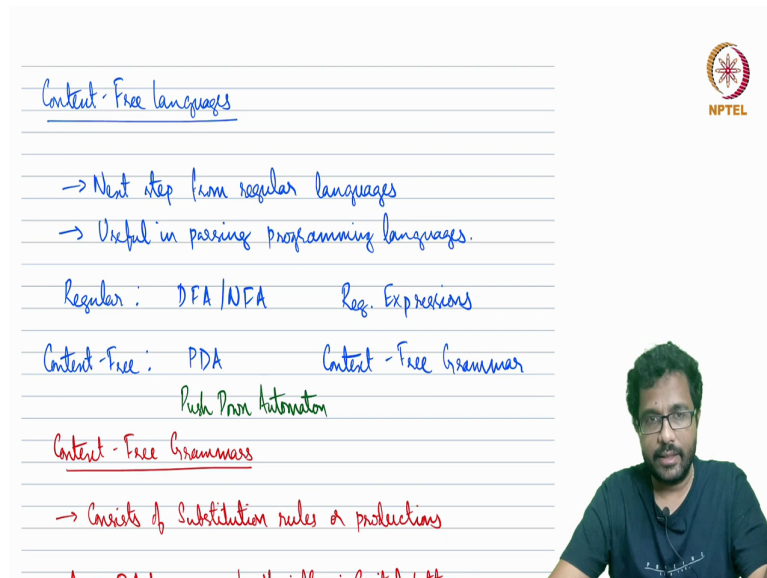 Context-Free Languages
NPTEL
→ Next step from regular languages
→ Useful in parsing programming languages.
Regular: DFA/NFA Reg. Expressions
Context-Free: PDA Context-Free Grammar
Push Down Automaton
Context-Free Grammars
→ Consists of Substitution rules or productions